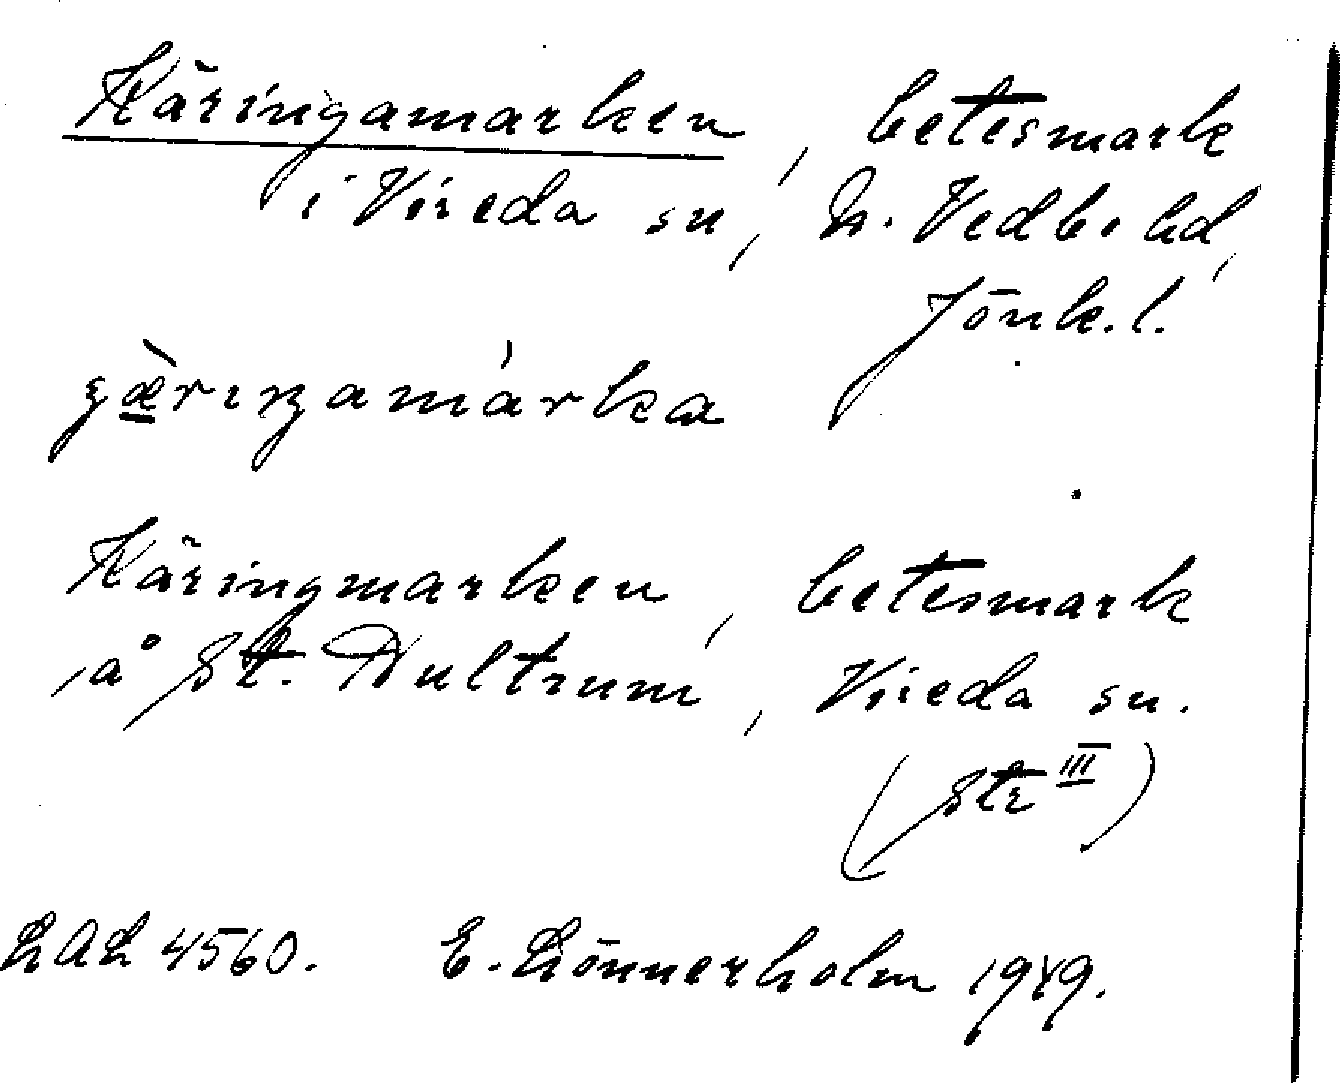 Käringamarken, betesmark
i Vireda sn, N. Vedbo hd,
Jönk. l.
Käringmarken, betesmark
å St. Nultrum, Vireda sn.
(Str III)
LAL 4560. E. Lönnerholm 1949.